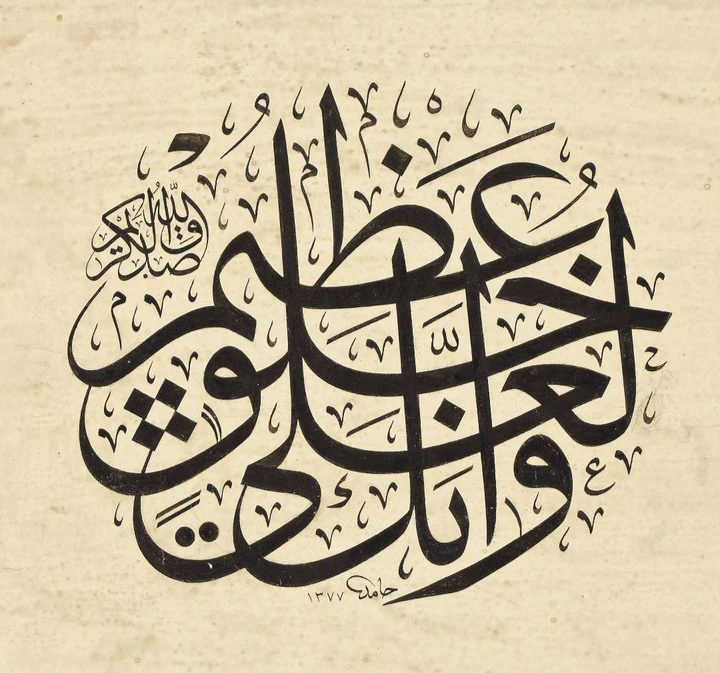 وَإِنَّكَ لَعَلَىٰ خُلُقٍ عَظِيمٍ
صدق الله الكريم
حامد ١٣٧٧